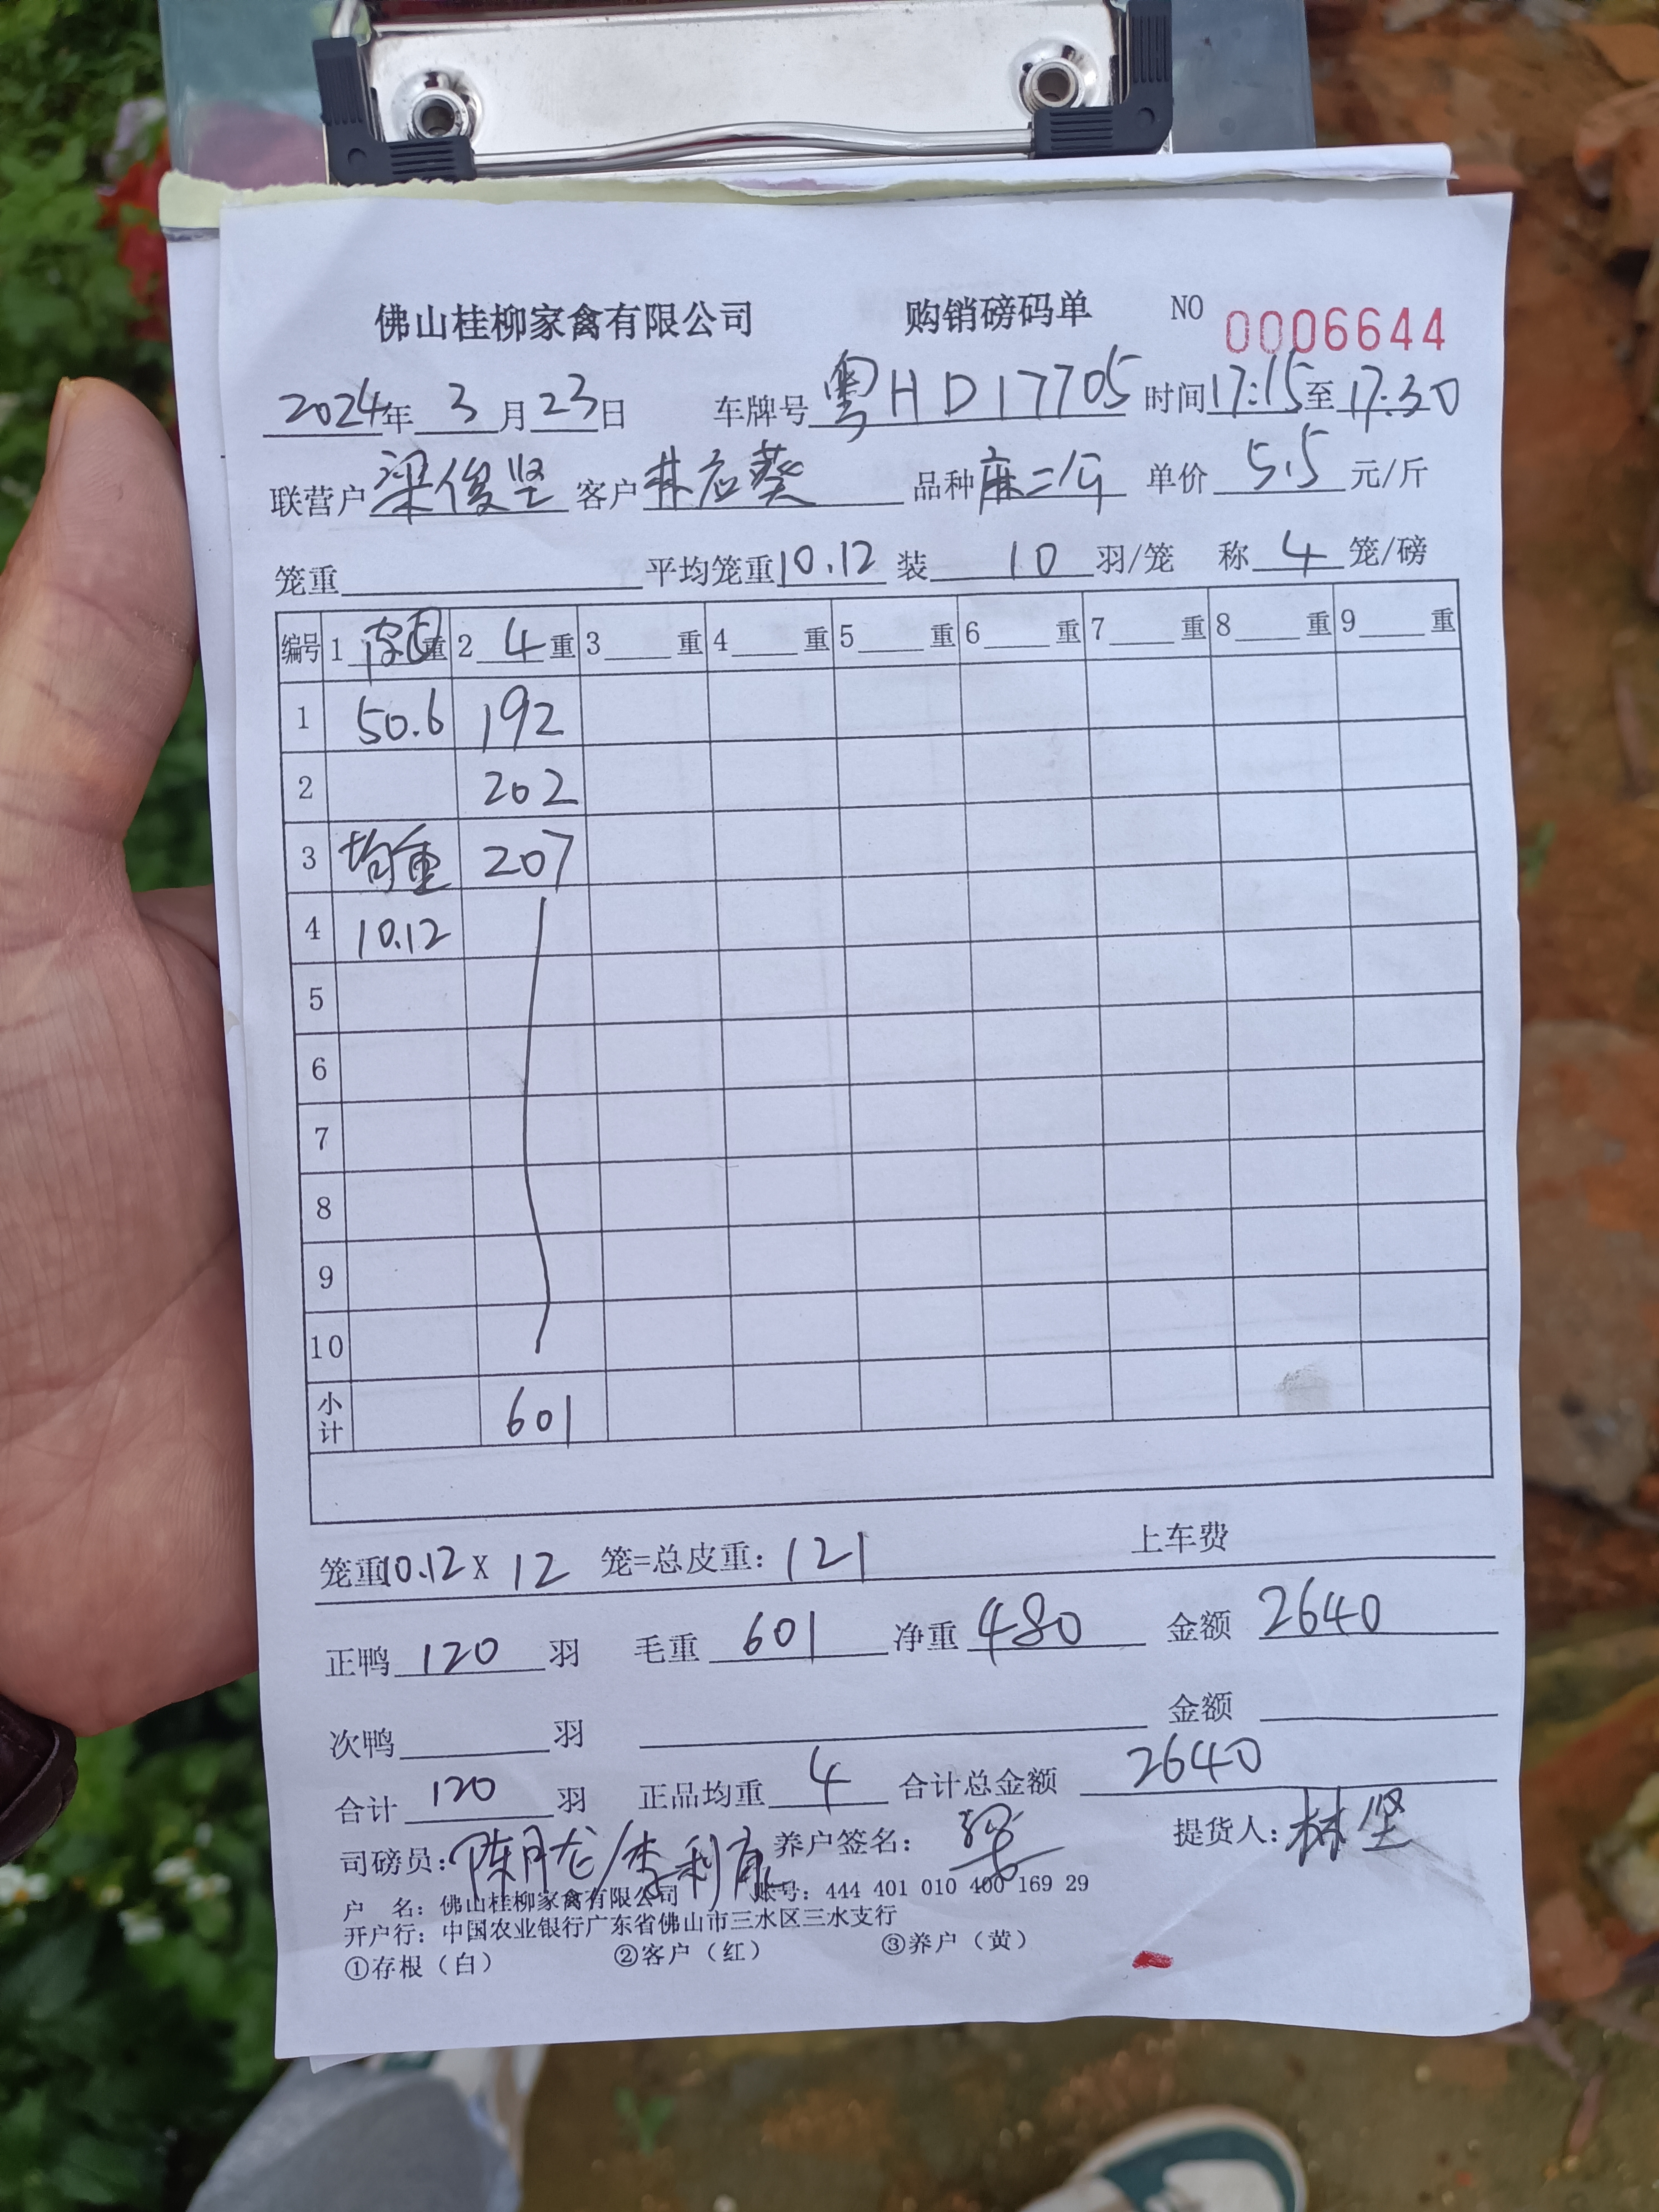 佛山桂柳家禽有限公司 购销磅码单 NO 0006644
2024年 3 月 23 日 车牌号 粤HD17705 时间 17:15 至 17:30
联营户 梁俊坚 客户 林应葵 品种 麻二公 单价 5.5 元/斤
笼重 平均笼重 10.12 装 10 羽/笼 称 4 笼/磅
编号 1 重 2 4 重 3 重 4 重 5 重 6 重 7 重 8 重 9 重
1 50.6 192
2 202
3 均重 207
4 10.12
5
6
7
8
9
10
小计 601
笼重 10.12 X 12 笼=总皮重: 121 上车费
正鸭 120 羽 毛重 601 净重 480 金额 2640
次鸭 羽 金额
合计 120 羽 正品均重 4 合计总金额 2640
司磅员: 陈月龙/李利 养户签名: 提货人: 林坚
户 名: 佛山桂柳家禽有限公司 账号: 444 401 010 400 169 29
开户行: 中国农业银行广东省佛山市三水区三水支行
①存根（白） ②客户（红） ③养户（黄）